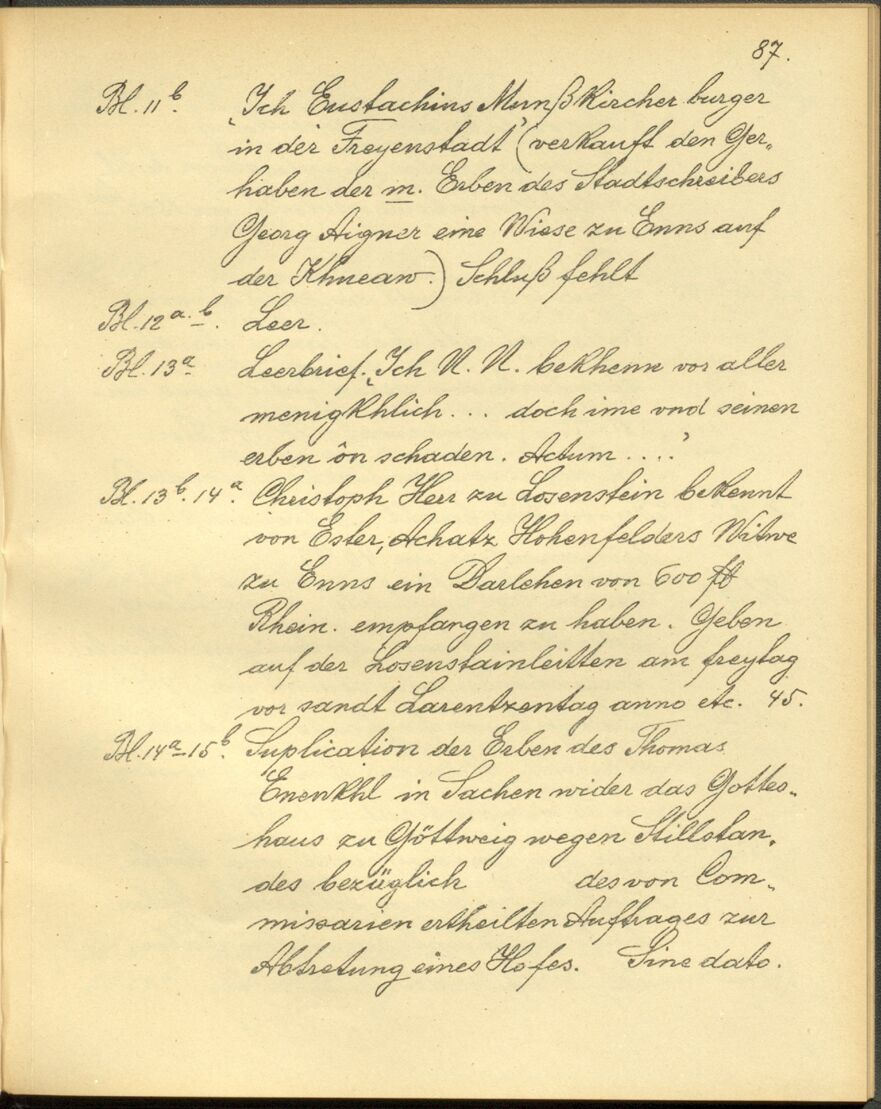 87.
Bl. 11 b. „Ich Eustachius Munßkircher burger
in der Freyenstadt" (verkauft den Ger-
haben der m. Erben des Stadtschreibers
Georg Aigner eine Wiese zu Enns auf
der Khneaw.) Schluß fehlt
Bl. 12 a. b. Leer.
Bl. 13 a Leerbrief. „Ich N. N. bekhenn vor aller
menigkhlich ... doch ime vnd seinen
erben ôn schaden. Actum ...."
Bl. 13 b. 14 a. Christoph Herr zu Losenstein bekennt
von Ester, Achatz Hohenfelders Witwe
zu Enns ein Darlehen von 600 fl
Rhein. empfangen zu haben. Geben
auf der Losenstainleitten am freytag
vor sandt Larentzentag anno etc. 45.
Bl. 14 a - 15 b. Suplication der Erben des Thomas
Enenkhl in Sachen wider das Gottes-
haus zu Göttweig wegen Stillstan-
des bezüglich des von Com-
missarien ertheilten Auftrages zur
Abtretung eines Hofes. Sine dato.